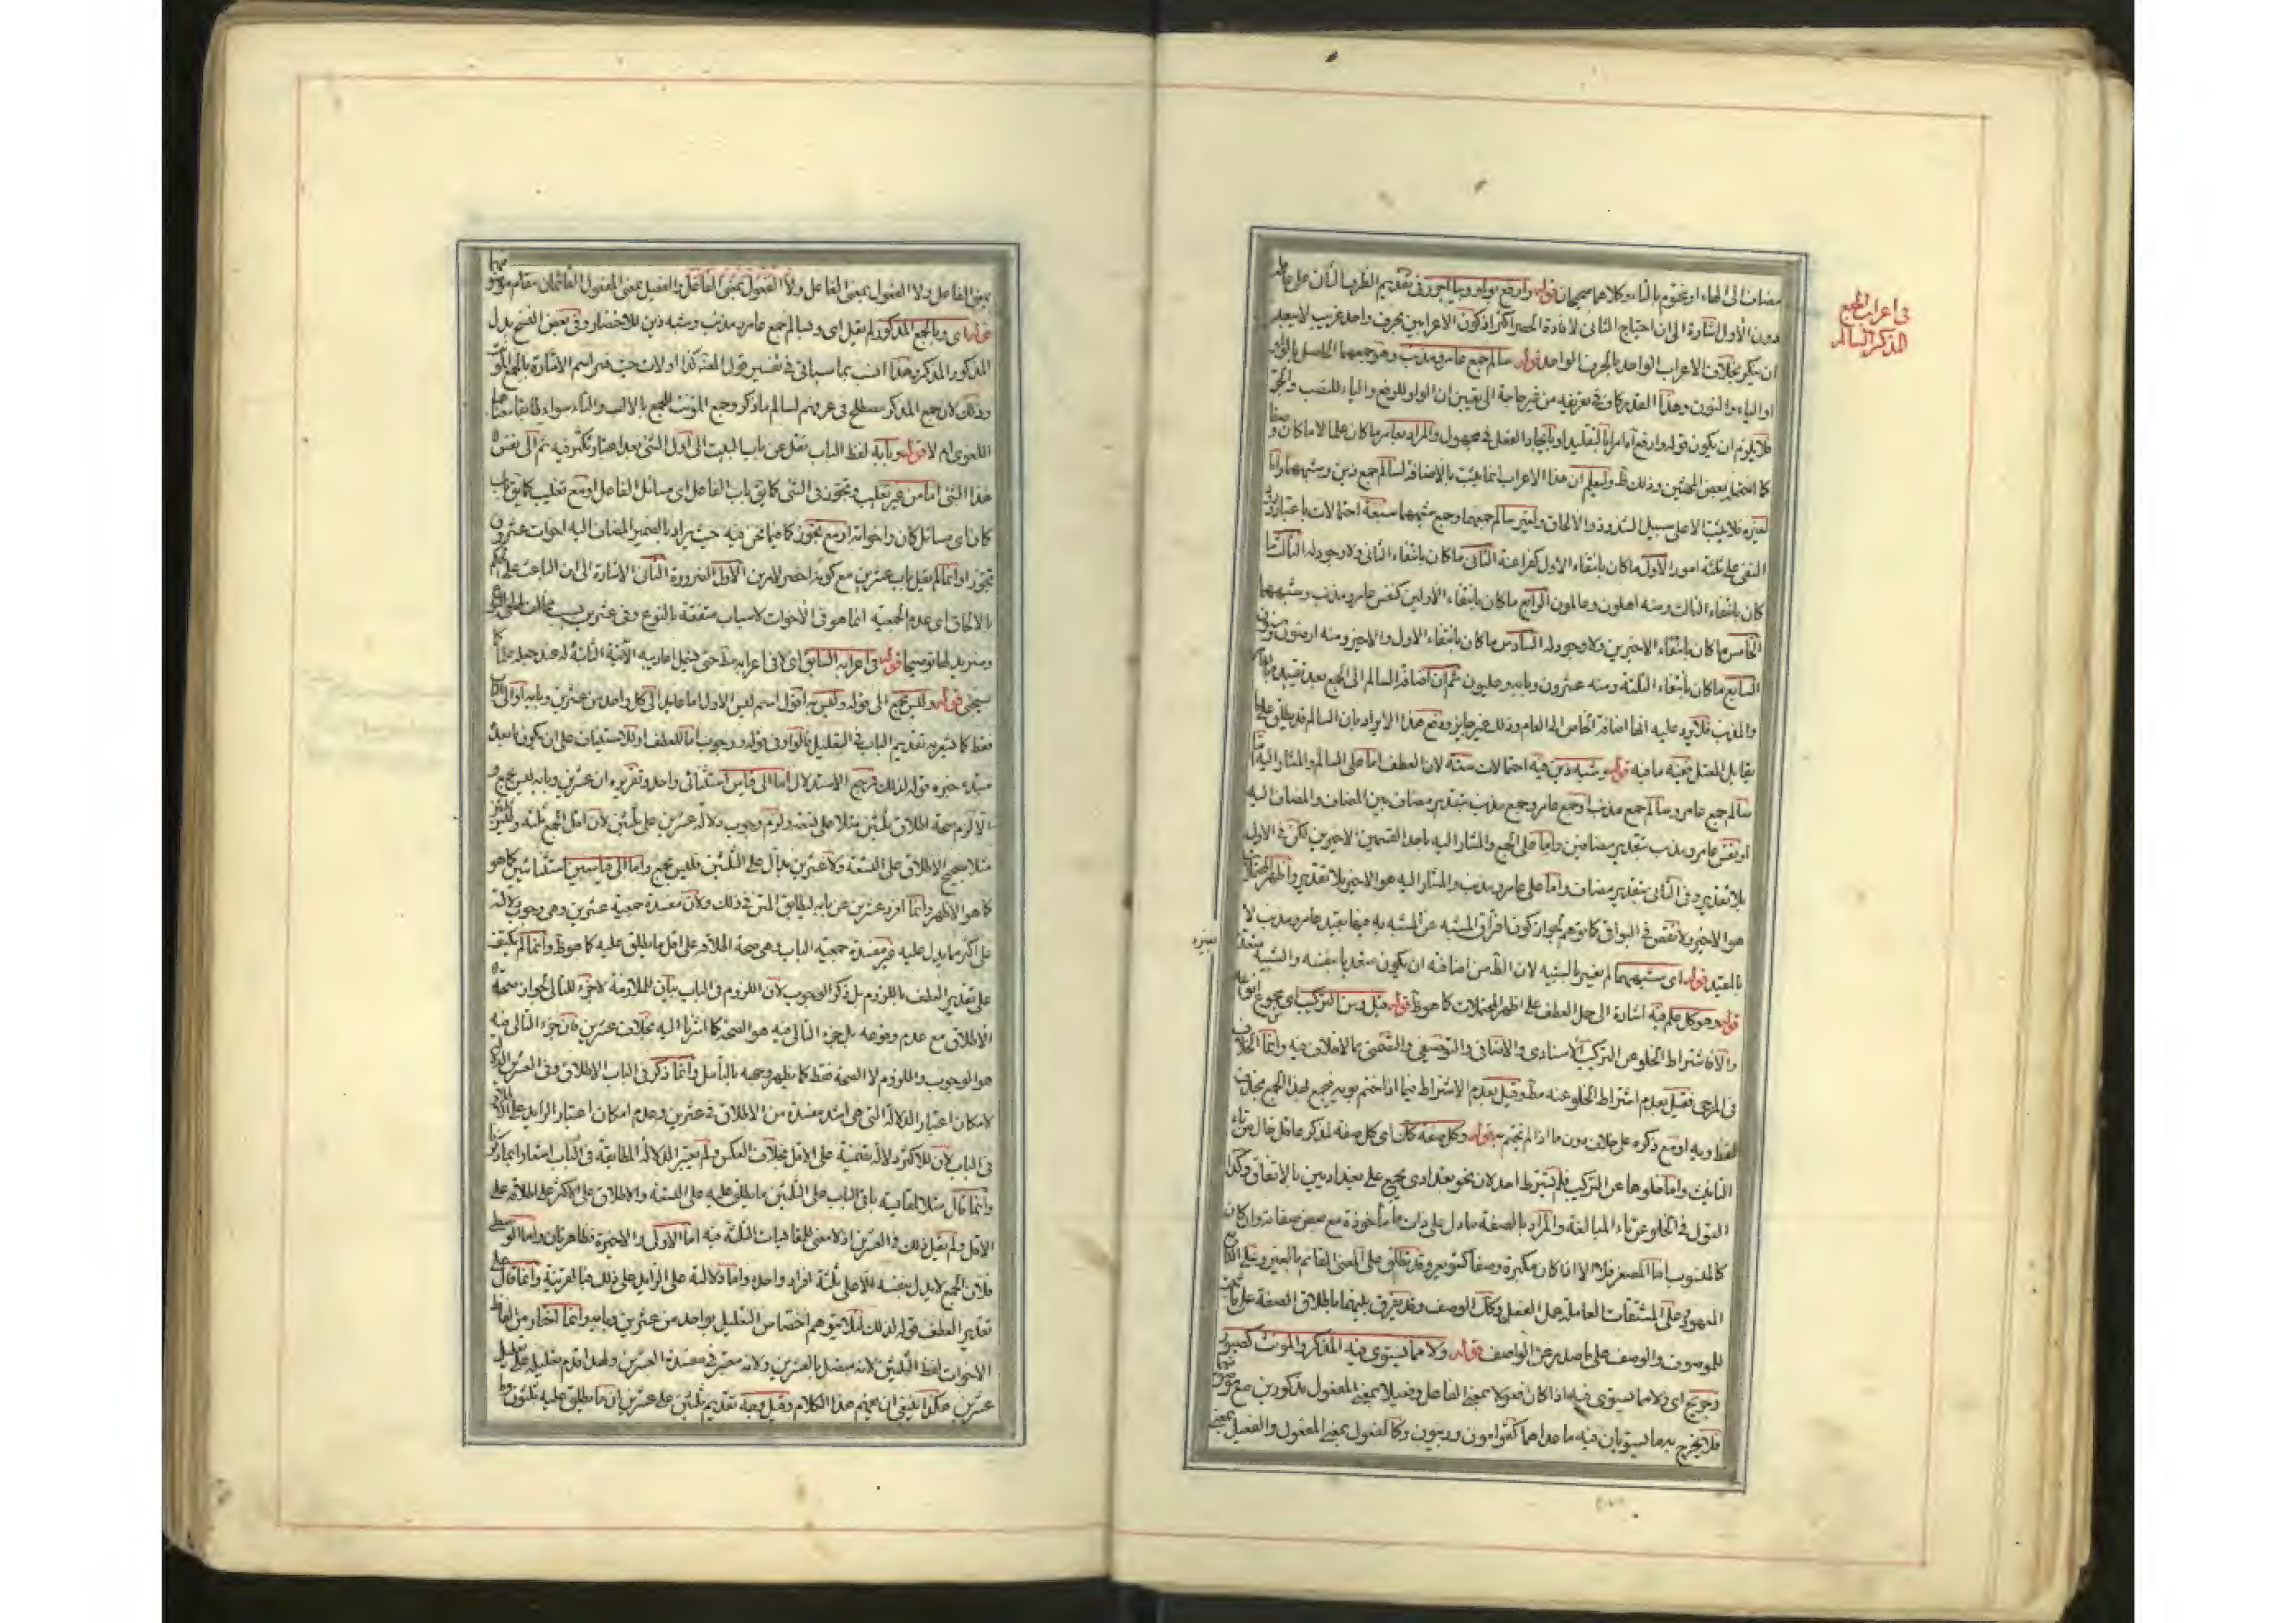 في اعراب الجمع
المذكر السالم
مضاف الى الهاء او مختوم بالتاء وكلاهما صحيحان قوله وارفع بواو وبيا اجرر في تقديم الظرف الثاني على عامله
دون الأول اشارة الى ان احتياج الثاني لافادة الحصر اكثر اذ كون الاعرابين بحرف واحد غريب لا يبعد
ان ينكر بخلاف الاعراب الواحد بالحرف الواحد قوله سالم جمع عامر ومذنب وهو جمعهما الحاصل بالواو
او الياء والنون وهذا القدر كاف في تعريفه من غير حاجة الى تعيين ان الواو للرفع والياء للنصب والجر
فلا يلزم ان يكون قوله وارفع آمرا بالتقليد او بايجاد الفعل في مجهول والمراد بعامر ما كان علما لا ما كان وصفا
كما اختاره بعض المحشين وذلك ظ وليعلم ان هذا الاعراب انما يثبت بالاضافة لسالم جمع ذين ومشبههما واما
لغيره فلا يثبت الا على سبيل الشذوذ والالحاق وغير سالم جمعهما وجمع مشبههما سبعة احتمالات باعتبار ورود
النفي على ثلثة امور الأول ما كان بانتفاء الاول كفراعنة الثاني ما كان بانتفاء الثاني ولا وجود له الثالث ما
كان بانتفاء الثالث ومنه اهلون وعالمون الرابع ما كان بانتفاء الأولين كنفس عامر ومذنب ومشبههما
الخامس ما كان بانتفاء الاخيرين ولا وجود له السادس ما كان بانتفاء الاول والاخير ومنه ارضون وسنون
السابع ما كان بانتفاء الثلثة ومنه عشرون وبابه وعليون ثم ان اضافة السالم الى الجمع بعد تقييده بعامر
والمذنب فلا يرد عليه انها اضافة الخاص الى العام وذلك غير جايز ودفع هذا الايراد بان السالم قد يطلق على ما
يقابل المعتل فيه ما فيه قوله وشبه ذين فيه احتمالات ستة لان العطف اما على السالم والمشار اليه اما
سالم جمع عامر وسالم جمع مذنب او جمع عامر وجمع مذنب بتقدير مضاف بين المضاف والمضاف اليه
او نفس عامر ومذنب بتقدير مضافين واما على الجمع والمشار اليه باحد القسمين الاخيرين لكن في الاول
بلا تقدير وفي الثاني بتقدير مضاف واما على عامر ومذنب والمشار اليه هو الاخير بلا تقدير واظهر المحتملات
هو الاخير ولا نقض في البواقي كما توهم لجواز كون افتراق المشبه عن المشبه به فيما يفيد عامر ومذنب لا
بالقيد قوله اي مشبههما لم يفسر بالشبه لان الظ من اضافته ان يكون متعديا بنفسه والشبيه متعد
بغيره
قوله وهو كل علم فيه اشارة الى حمل العطف على اظهر المحتملات كما هو ظ قوله قبل ومن التركيب اي بجميع انواعه
والا فاشتراط الخلو عن التركيب الاسنادي والاضافي والتوصيفي والتضمني مما لا خلاف فيه وانما الخلاف
في المزجي فقيل بعدم اشتراط الخلو عنه مط وقيل بعدم الاشتراط فيما اذا ختم بويه فيجمع لهذا الجمع بحذف
لفظ ويه او مع ذكره على خلاف دون ما اذا لم يختم به قوله وكل صفة كان اي كل صفة لمذكر عاقل خال من تاء
التانيث واما خلوها عن التركيب فلم يشترط احد لان نحو بغدادي يجمع على بغداديين بالاتفاق وكذا
القول في الخلو عن تاء المبالغة والمراد بالصفة ما دل على ذات ما مأخوذة مع بعض صفاته وان كان
كالمنسوب اما المصغر فلا الا اذا كان مكبره وصفا كشويعر وقد يطلق على المعنى القائم بالغير وعلى التابع
المشهور وعلى المشتقات العاملة عمل الفعل وكذا الوصف وقد يفرق بينهما باطلاق الصفة على ما ثبت
للموصوف والوصف على ما صدر عن الواصف قوله ولا مما يستوي فيه المذكر والمونث كصبور
وجريح اي ولا مما يستوي فيه اذا كان فعولا بمعنى الفاعل وفعيلا بمعنى المفعول مذكورين مع موصوفهما
فلا يخرج بهما يستويان فيه ما عداهما كقوامون وربعون وكالفعول بمعنى المفعول والفعيل بمعنى
بمعنى الفاعل ولا الفعول بمعنى الفاعل ولا الفعول بمعنى الفاعل والفعيل بمعنى المفعول القائمان مقام موصوفهما
قوله اي وبالجمع المذكور لم يقل اي وبسالم جمع عامر ومذنب وشبه ذين للاختصار وفي بعض النسخ بدل
المذكور المذكر وهذا انسب بما سياتي في تفسير قول المصنف كذا اولات حيث فسر اسم الاشارة بالجمع المونث
وذلك لان جمع المذكر مصطلح في عرفهم لسالم ما ذكر وجمع المؤنث للجمع بالالف والتاء سواء طابقا معناهما
اللغوي ام لا قوله وبابه لفظ الباب نقل عن باب البيت الى اول الشئ بعد اعتبار تكثر فيه ثم الى نفس
هذا الشئ اما من غير تغليب وتجوز في الشئ كما يق باب الفاعل اي مسائل الفاعل او مع تغليب كما يق باب
كان اي مسائل كان واخواته او مع تجوز كما فيما نحن فيه حيث يراد بالضمير المضاف اليه اخوات عشرون
تجوزا وانما لم يقل باب عشرين مع كونه اخصر لامرين الأول الضرورة الثاني الاشارة الى ان الباعث على الحكم
بالالحاق اي عدم الجمعية انما هو في الاخوات لاسباب متفقة بالنوع وفي عشرين بسبب مخالف لها بالنوع
وسنزيد لها توضيحا قوله في اعرابه السابق اي لا في اعرابه مط حتى
سيجئ قوله وليس بجمع الى قوله وليس به اقول اسم ليس الاول اما عايد الى كل واحد من عشرين وبابه او الى الباب
فقط كما يشعر به تقديم الباب في التعليل بالواو في قوله ووجوب اما للعطف او للاستيناف على ان يكون ما بعده
مبتدء خبره قوله لذلك فمرجع الاستدلال اما الى قياس استثنائي واحد وتقريره ان عشرين وبابه ليس بجمع و
الا لزم صحة اطلاق ثلثين مثلا على تسعة ولزم وجوب دلالة عشرين على ثلثين لان اقل الجمع ثلثة وليس ثلثين
مثلا صحيح الاطلاق على التسعة ولا عشرين بدال على الثلثين فليس بجمع واما الى قياسين استثنائيين كما هو
كما هو الاظهر وانما افرد عشرين عن بابه ليطابق المتن في ذلك ولان مفسدة جمعية عشرين وهي وجوب دلالته
على اكثر مما يدل عليه غير مفسدة جمعية الباب وهي صحة اطلاقه على اقل ما يطلق عليه كما هو ظ وانما لم يكتف
على تقدير العطف باللزوم بل ذكر الوجوب لان اللزوم في الباب بيان للملازمة لا جزء للتالي لجواز صحة
الاطلاق مع عدم وقوعه بل جزء التالي فيه هو الصحة كما اشرنا اليه بخلاف عشرين فان جزء التالي فيه
هو الوجوب واللزوم لا الصحة فقط كما يظهر وجهه بالتأمل وانما ذكر في الباب الاطلاق وفي العشرين الدلالة
لامكان اعتبار الدلالة التي هي اشد مفسدة من الاطلاق في عشرين وعدم امكان اعتبار الزايد على الاطلاق
في الباب لان للاكثر دلالة تضمنية على الاقل بخلاف العكس ولم يعتبر الدلالة المطابقة في الباب
وانما قال مثلا لمقايسة باقي الباب على الثلثين ما يطلق عليه على التسعة والاطلاق على الاكثر على اطلاقه على
الاقل ولم يقل ذلك في العشرين اذ لا معنى للمقايسات الثلثة فيه اما الاولى والاخيرة فظاهرتان واما الوسطى
فلان الجمع لا يدل بنفسه الا على ثلثة افراد واحده واما دلالته على الزايد على ذلك فبالقرينة وانما قال على
تقدير العطف قوله لذلك لئلا يتوهم اختصاص التعليل بواحد من عشرين وبابه وانما اختار من الفاظ
الاخوات لفظ الثلثين لانه متصل بالعشرين ولانه معتبر في مفسدة العشرين ولهذا قدم تعليله على تعليل
عشرين هكذا ينبغي ان يفهم هذا الكلام وقيل وجه تقديم ثلثين على عشرين ان ما يطلق عليه ثلثون